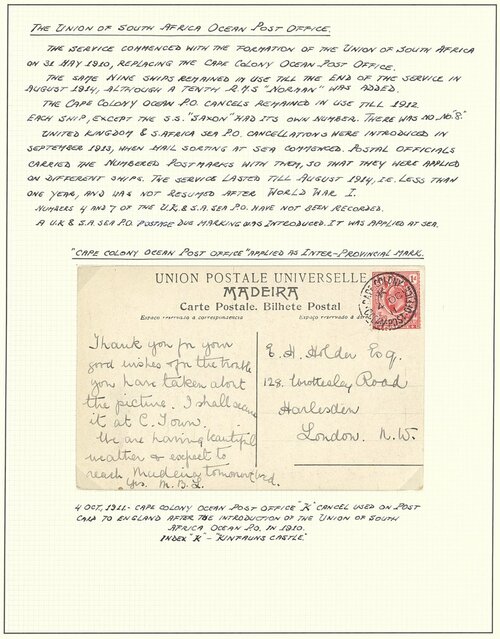 THE UNION OF SOUTH AFRICA OCEAN POST OFFICE.
THE SERVICE COMMENCED WITH THE FORMATION OF THE UNION OF SOUTH AFRICA
ON 31 MAY 1910, REPLACING THE CAPE COLONY OCEAN POST OFFICE.
THE SAME NINE SHIPS REMAINED IN USE TILL THE END OF THE SERVICE IN
AUGUST 1914, ALTHOUGH A TENTH R.M.S "NORMAN" WAS ADDED.
THE CAPE COLONY OCEAN P.O. CANCELS REMAINED IN USE TILL 1912
EACH SHIP, EXCEPT THE S.S. "SAXON" HAD ITS OWN NUMBER. THERE WAS NO NO. "8."
UNITED KINGDOM & S.AFRICA SEA P.O. CANCELLATIONS WERE INTRODUCED IN
SEPTEMBER 1913, WHEN MAIL SORTING AT SEA COMMENCED. POSTAL OFFICIALS
CARRIED THE NUMBERED POSTMARKS WITH THEM, SO THAT THEY WERE APPLIED
ON DIFFERENT SHIPS. THE SERVICE LASTED TILL AUGUST 1914, I.E. LESS THAN
ONE YEAR, AND WAS NOT RESUMED AFTER WORLD WAR I.
NUMBERS 4 AND 7 OF THE U.K. & S.A. SEA P.O. HAVE NOT BEEN RECORDED.
A U.K & S.A. SEA P.O. POSTAGE DUE MARKING WAS INTRODUCED. IT WAS APPLIED AT SEA.
"CAPE COLONY OCEAN POST OFFICE" APPLIED AS INTER-PROVINCIAL MARK.
UNION POSTALE UNIVERSELLE
MADEIRA
Carte Postale. Bilhete Postal
Espaço reservado a correspondencia
Espaço reservado a
Thank you for your
good wishes & for the trouble
you have taken about
the picture. I shall
it at C. Town.
We are having beautiful
weather & expect to
reach Madeira tomorrow
Yrs. M.B.L.
E. H. Holder Esq.
128. Wrottesley Road
Harlesden
London. N.W.
4 OCT, 1911.- CAPE COLONY OCEAN POST OFFICE "K" CANCEL USED ON POST
CARD TO ENGLAND AFTER THE INTRODUCTION OF THE UNION OF SOUTH
AFRICA OCEAN P.O. IN 1910.
INDEX "K" - "KINFAUNS CASTLE"